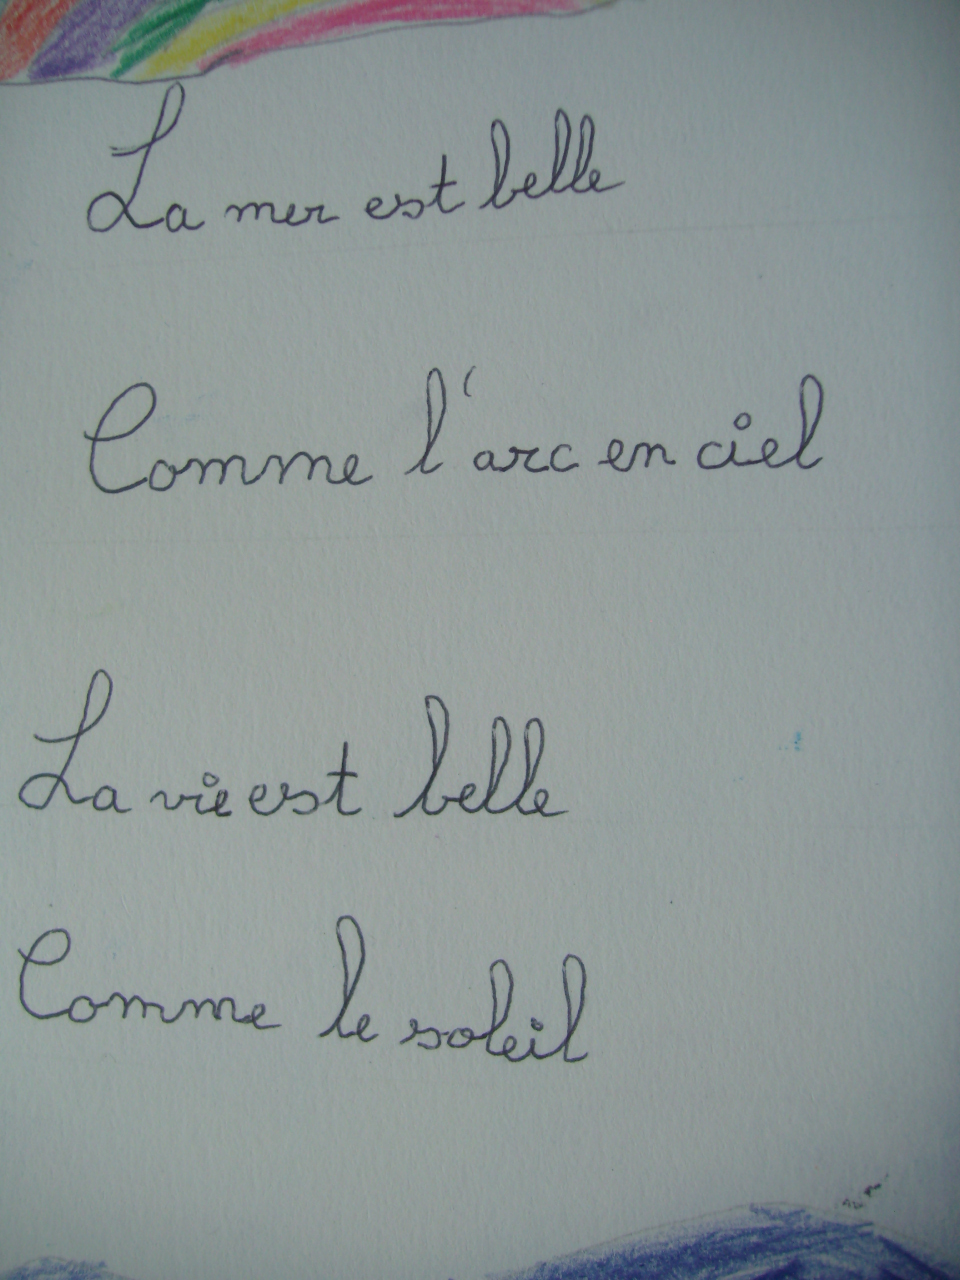 La mer est belle
Comme l'arc en ciel
La vie est belle
Comme le soleil